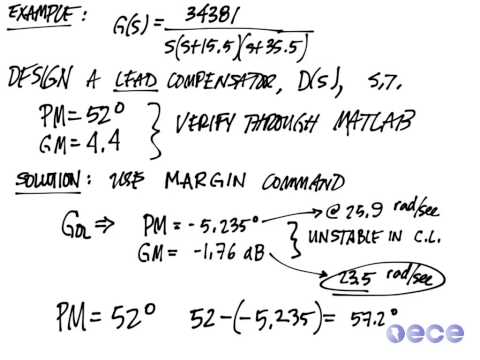 EXAMPLE: G(s) = 34381
s(s+15.5)(s+35.5)
DESIGN A LEAD COMPENSATOR, D(s), S.T.
PM = 52°
GM = 4.4 } VERIFY THROUGH MATLAB
SOLUTION: USE MARGIN COMMAND
G_OL ⇒ PM = -5.235° → @ 25.9 rad/sec
GM = -1.76 dB } UNSTABLE IN C.L.
23.5 rad/sec
PM = 52° 52-(-5.235) = 57.2°
ece